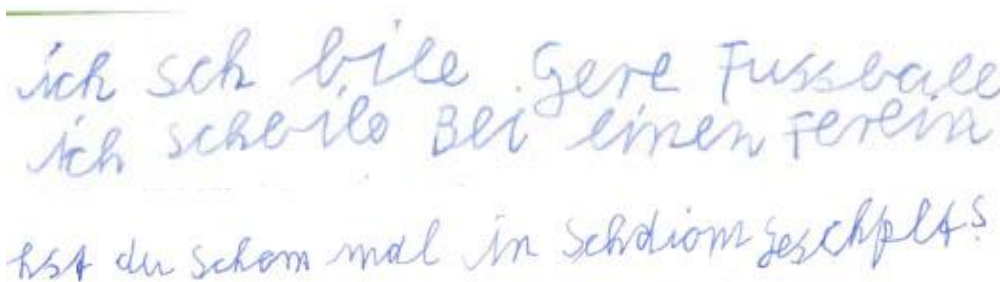 ich sch bile Gere Fussball
ich schbile Bei einen Ferein
hst du schom mal in schdiom geschplt?